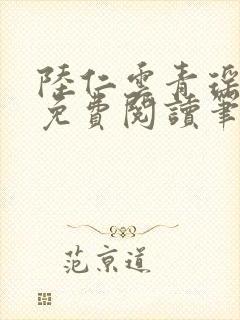 陸仁雲青瑶
免費閱讀筆
范京道